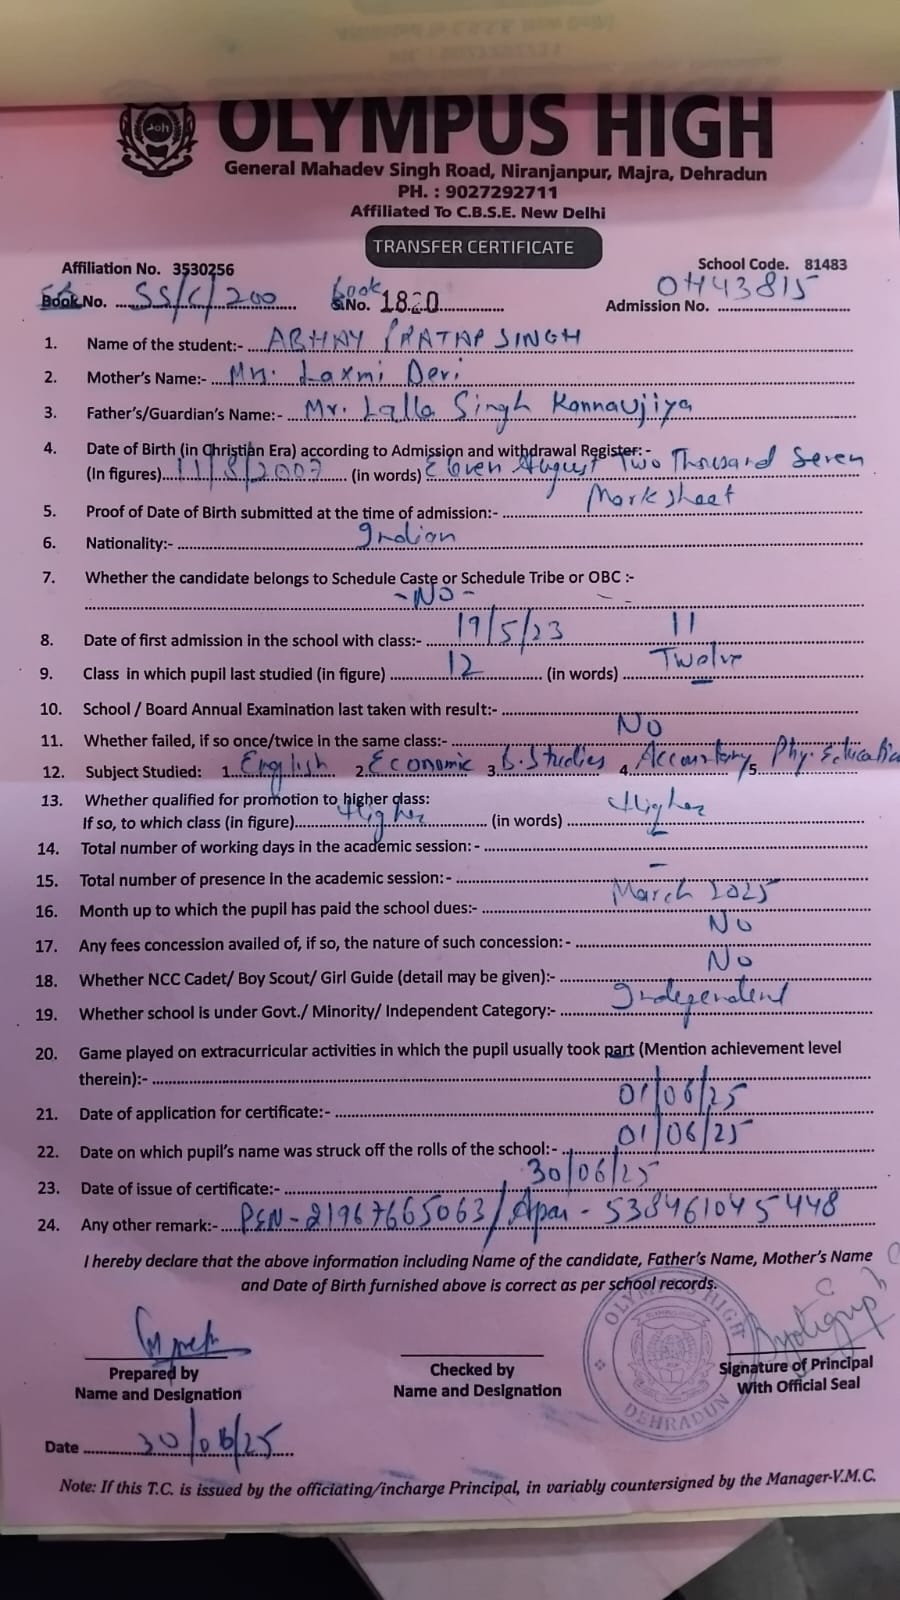 OLYMPUS HIGH
General Mahadev Singh Road, Niranjanpur, Majra, Dehradun
PH. : 9027292711
Affiliated To C.B.S.E. New Delhi
TRANSFER CERTIFICATE
Affiliation No. 3530256 School Code. 81483
Book No. SS/C/200 Book S.No. 1820 Admission No. OH43815
1. Name of the student:- ABHAY PRATAP SINGH
2. Mother's Name:- Mrs. Laxmi Devi
3. Father's/Guardian's Name:- Mr. Lalla Singh Kannaujiya
4. Date of Birth (in Christian Era) according to Admission and withdrawal Register:-
(In figures) 11/8/2007 (in words) Eleven August Two Thousand Seven
5. Proof of Date of Birth submitted at the time of admission:- Marksheet
6. Nationality:- Indian
7. Whether the candidate belongs to Schedule Caste or Schedule Tribe or OBC :-
-No-
8. Date of first admission in the school with class:- 19/5/23 11
9. Class in which pupil last studied (in figure) 12 (in words) Twelve
10. School / Board Annual Examination last taken with result:-
11. Whether failed, if so once/twice in the same class:- No
12. Subject Studied: 1. English 2. Economic 3. B.Studies 4. Accountany 5. Phy. Education
13. Whether qualified for promotion to higher class:
If so, to which class (in figure) Higher (in words) Higher
14. Total number of working days in the academic session: -
15. Total number of presence in the academic session:- –
16. Month up to which the pupil has paid the school dues:- March 2025
17. Any fees concession availed of, if so, the nature of such concession: - No
18. Whether NCC Cadet/ Boy Scout/ Girl Guide (detail may be given):- No
19. Whether school is under Govt./ Minority/ Independent Category:- Independent
20. Game played on extracurricular activities in which the pupil usually took part (Mention achievement level
therein):-
21. Date of application for certificate:- 01/06/25
22. Date on which pupil's name was struck off the rolls of the school:- 01/06/25
23. Date of issue of certificate:- 30/06/25
24. Any other remark:- PEN-21967665063/Apar-538461045448
I hereby declare that the above information including Name of the candidate, Father's Name, Mother's Name
and Date of Birth furnished above is correct as per school records.
OLYMPUS HIGH
DEHRADUN
Prepared by Checked by Signature of Principal
Name and Designation Name and Designation With Official Seal
Date 30/06/25
Note: If this T.C. is issued by the officiating/incharge Principal, in variably countersigned by the Manager-V.M.C.